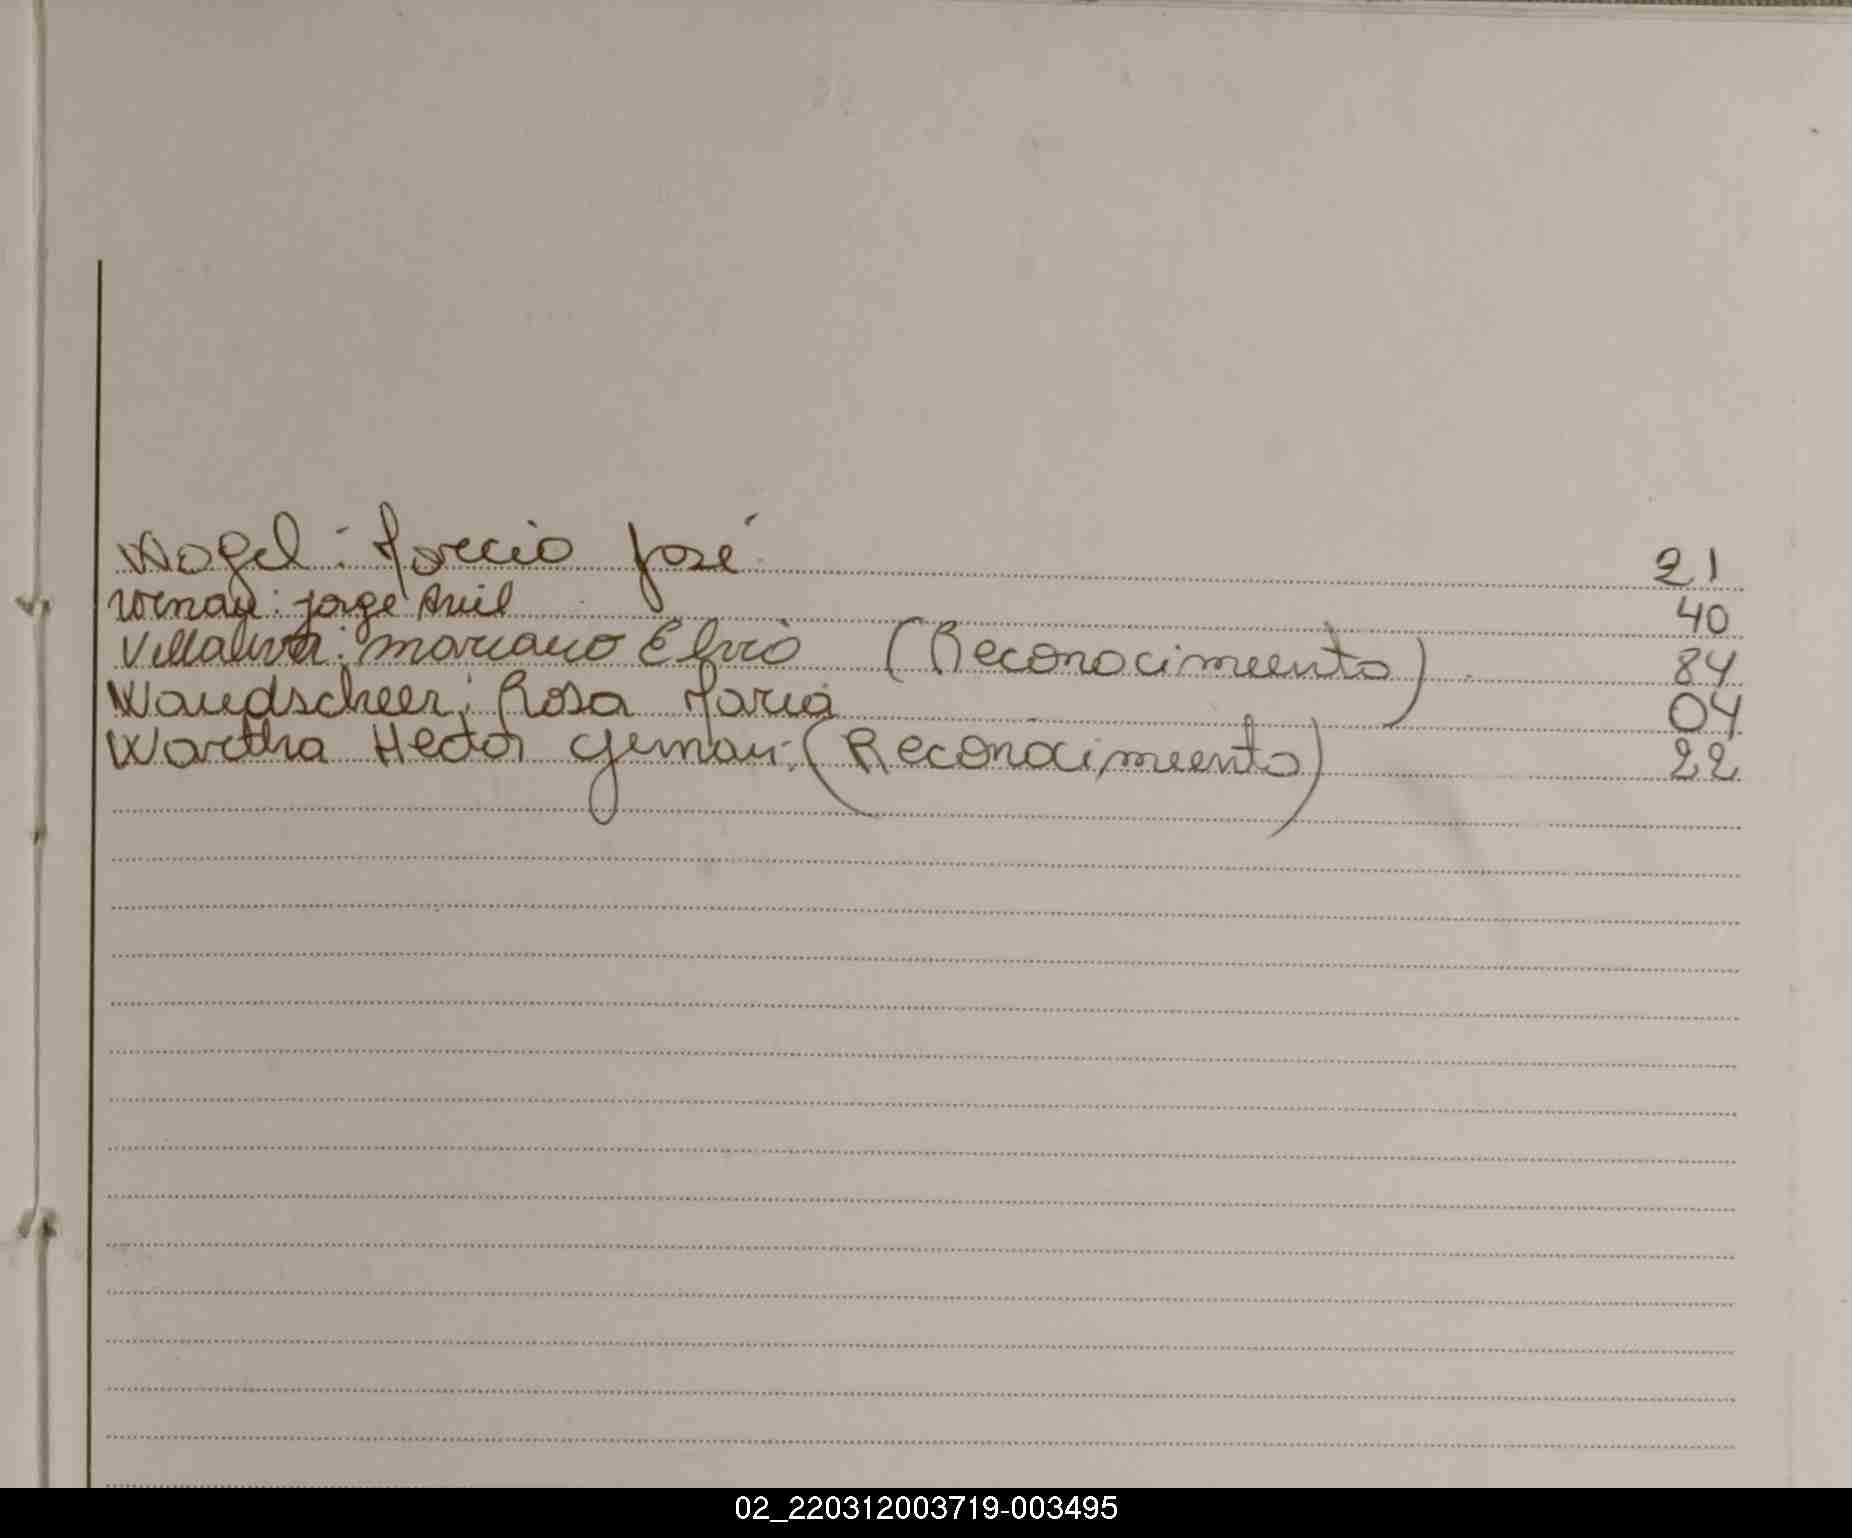 Wogel: Marcio José 21
Wernay: Jorge Ariel 40
Villalva: Mariano Elvio (Reconocimiento) 84
Wandscheer; Rosa Maria 04
Wartha Hector German: (Reconocimiento) 22
02_220312003719-003495